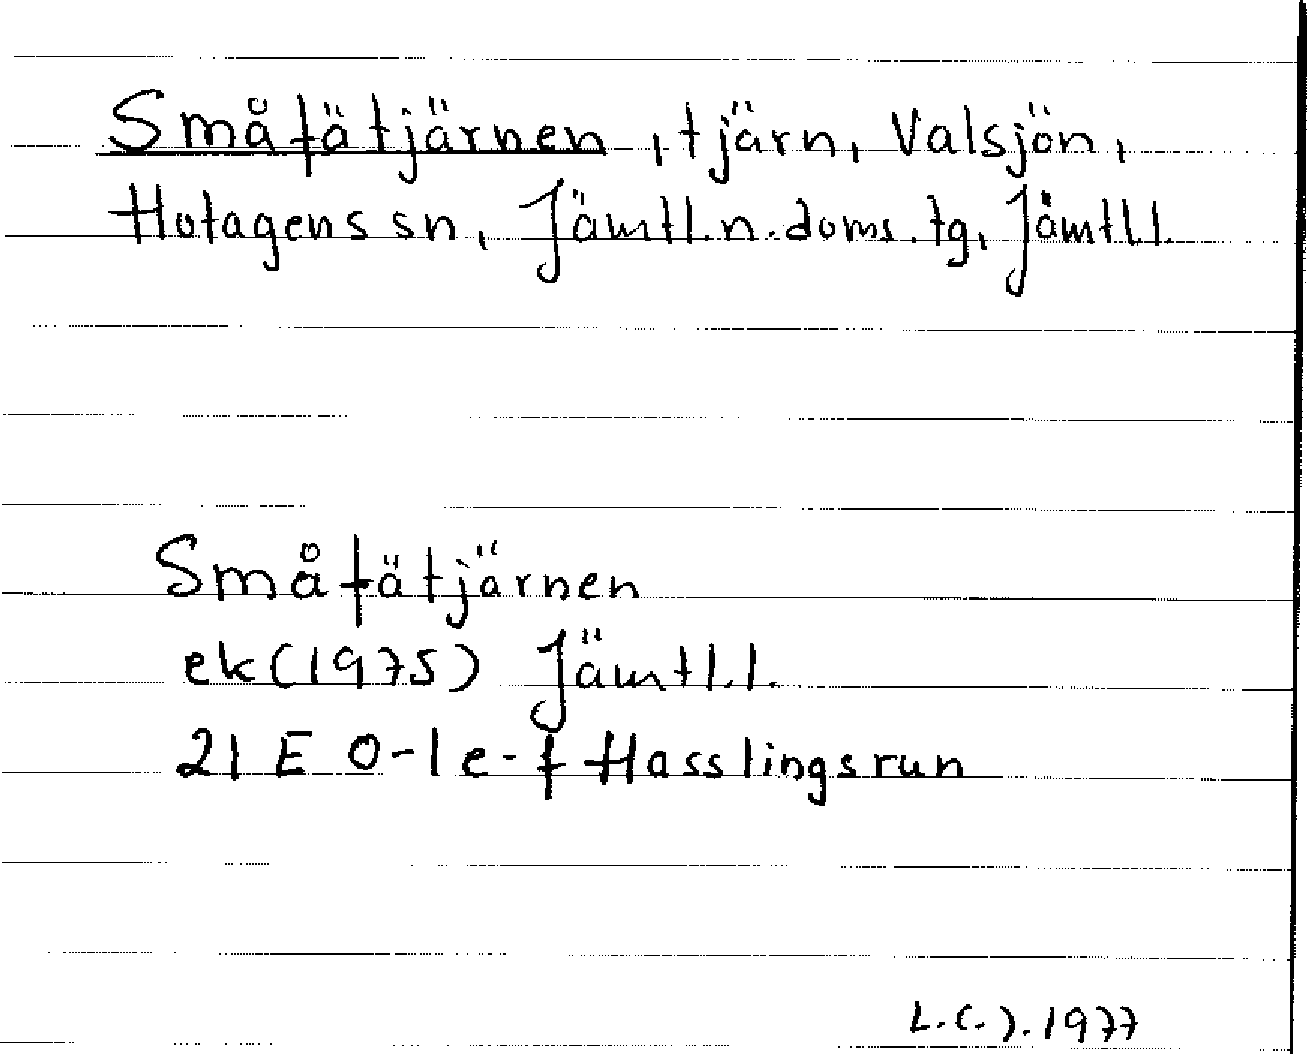 Småfätjärnen, tjärn, Valsjön,
Hotagens sn, Jämtl.n.doms.tg, Jämtl.l.
Småfätjärnen
ek (1975) Jämtl.l.
21 E 0-1 e-f Hasslingsrun
L.C.J. 1977